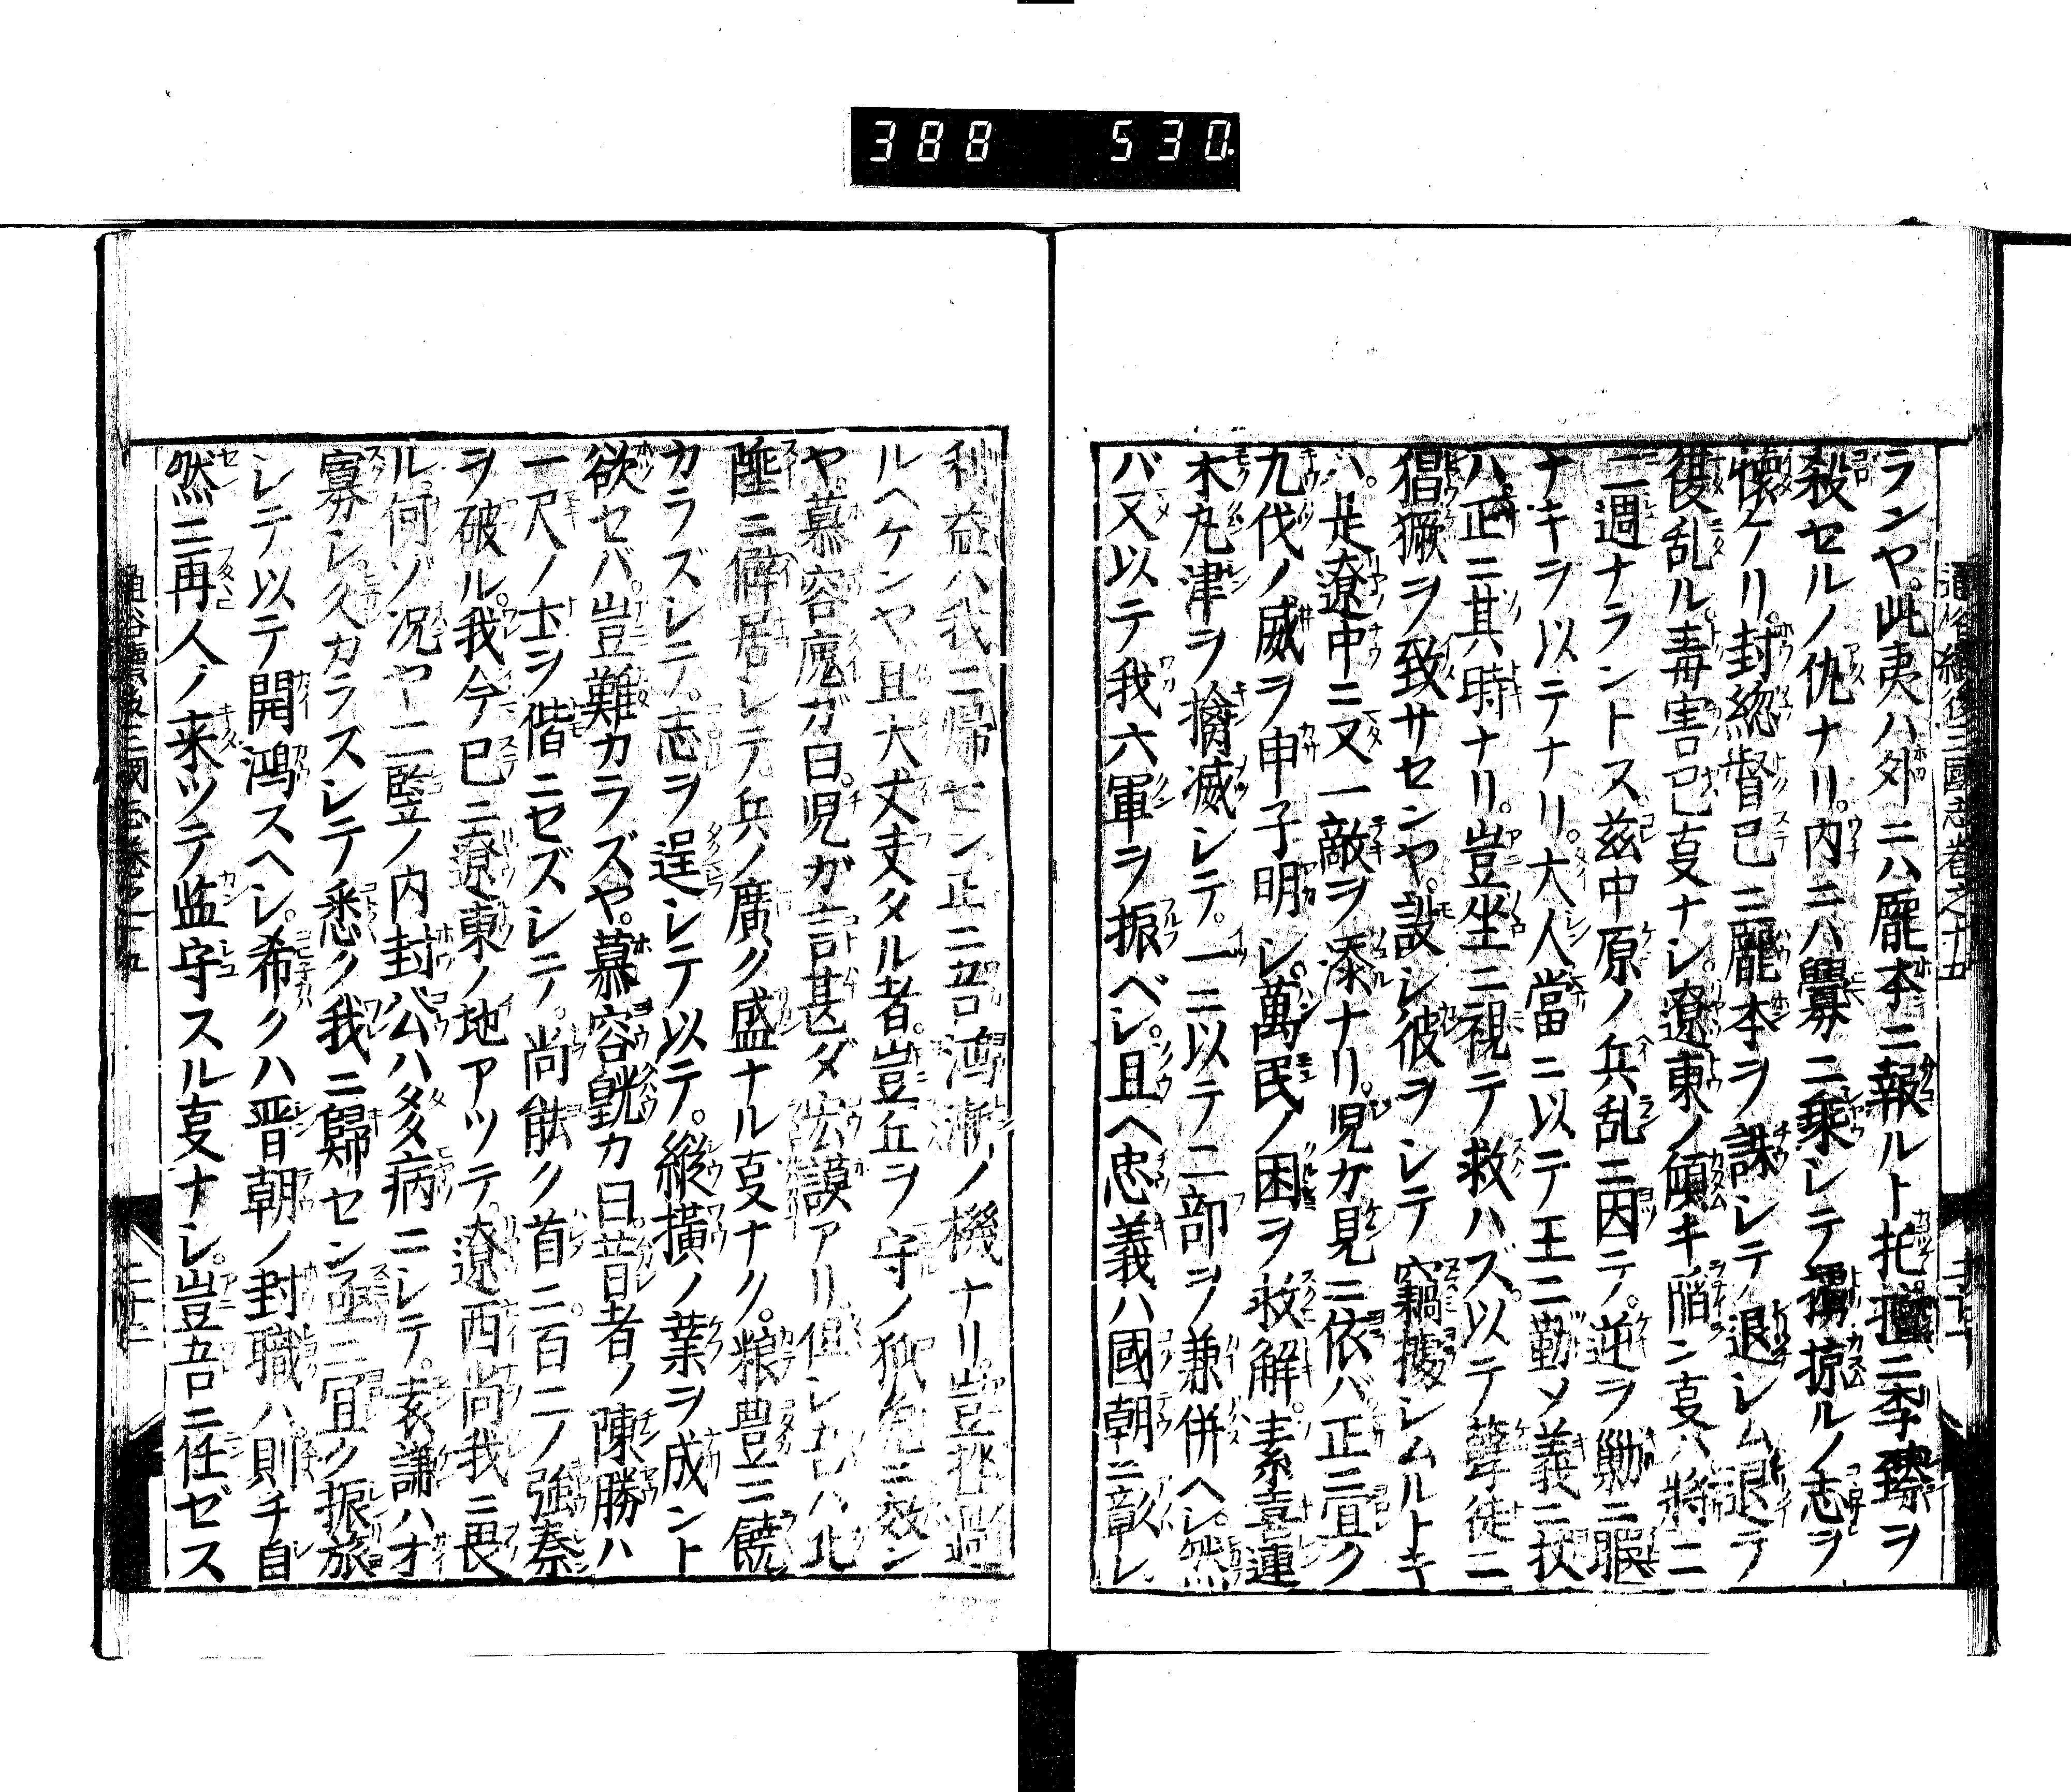 388 530
通俗續後三國志卷之十五
ランヤ。此夷ハ外ニハ龐本ニ報ルト托。擅ニ李臻ヲ
殺セルノ仇ナリ。内ニハ釁ニ乗シテ擄掠ルノ志ヲ
懐ケリ。封総督已ニ龐本ヲ誅シテ退シム退テ
復乱ル。毒害已㕝ナシ。遼東ノ傾キ陥ン㕝ハ將ニ
二週ナラントス。茲中原ノ兵乱ニ因テ。逆ヲ勦ニ暇
ナキヲ以テナリ。大人當ニ以テ王ニ勤メ義ニ扶
ハ。正ニ其時ナリ。豈坐ニ視テ救ハズ。以テ孽徒ニ
猖獗ヲ致サセンヤ。設シ彼ヲシテ竊據シムルトキ
ハ。是遼中ニ又一敵ヲ添ナリ。児カ見ニ依バ正ニ宜ク
九伐ノ威ヲ申子明シ。萬民ノ困ヲ救解素喜連
木丸津ヲ擒滅シテ。一ニ以テ二部ヲ兼併ヘシ。然
バ又以テ我六軍ヲ振ベシ。且ヘ忠義ハ國朝ニ彰レ
利益ハ我ニ帰セン正ニ吾鴻漸ノ機ナリ。豈挫過
ルヘケンヤ且大丈夫タル者。豈丘ヲ守ノ狐兔ニ效ン
ヤ。慕容廆ガ曰。児ガ言甚ダ宏謨アリ。但シ吾ハ北
陲ニ僻居シテ。兵ノ廣ク盛ナル㕝ナク。粮豊ニ饒
カラズシテ。志ヲ逞シテ以テ。縦横ノ業ヲ成ント
欲セバ。豈難カラズヤ。慕容皝カ曰。昔者ノ陳勝ハ
一尺ノ士ヲ偕ニセズシテ。尚能ク首ニ。百二ノ強秦
ヲ破ル。我今已ニ遼東ノ地アツテ。遼西尚我ニ畏
ル。何ゾ况ヤ一二竪ノ内封公ハ多病ニシテ。袁謙ハ才
寡シ。久カラスシテ悉ク我ニ歸セン亟ニ宜ク振旅
シテ以テ開鴻スヘシ。希クハ晋朝ノ封職ハ則チ自
然ニ再人ノ来ツテ監守スル㕝ナシ。豈吾ニ任ゼス